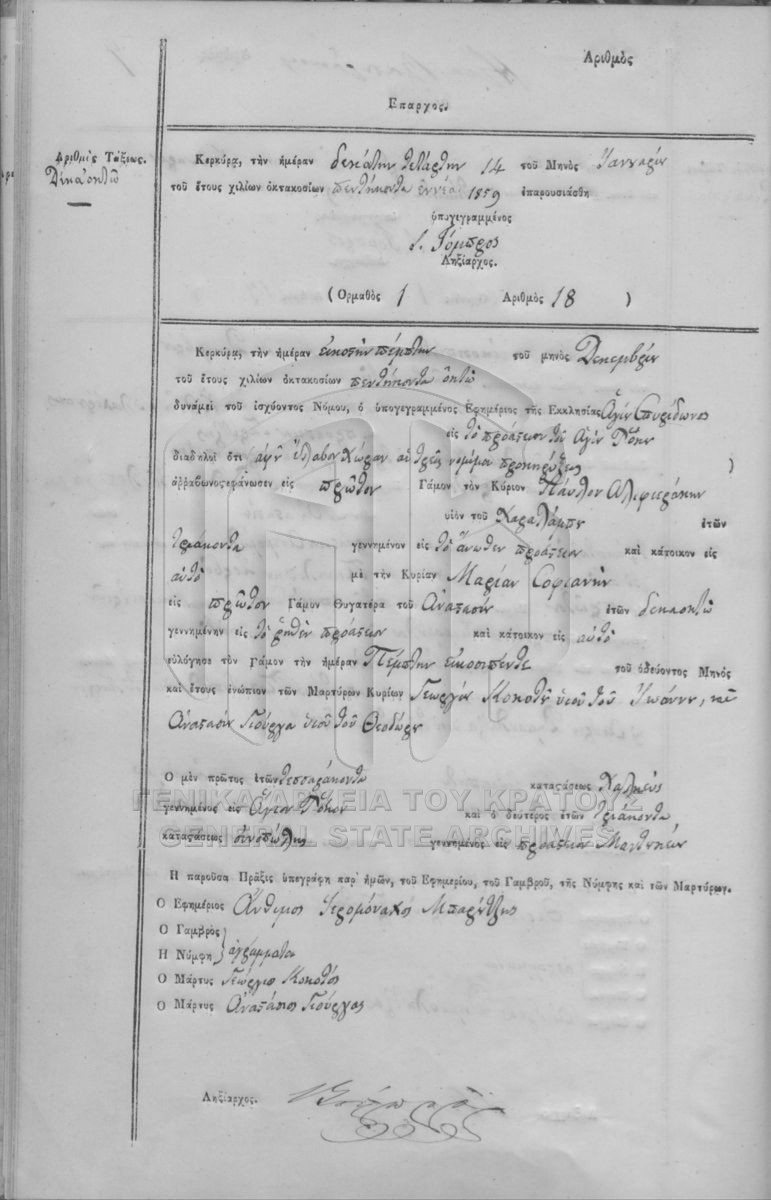 Ἀριθμὸς
Ἐπαρχος.
Ἀριθμὸς Τάξεως.
Δεκαοκτὼ
Κερκύρα, τὴν ἡμέραν δεκάτην τετάρτην 14 τοῦ Μηνὸς Ἰανουαρίου
τοῦ ἔτους χιλίων ὀκτακοσίων πεντήκοντα ἐννέα 1859 ἐπαρουσιάσθη
ὑπογεγραμμένος
Γόμπρος
Ληξίαρχος.
(Ὁρμαθὸς 1 Ἀριθμὸς 18 )
Κερκύρα, τὴν ἡμέραν εἰκοστὴν πέμπτην τοῦ μηνὸς Δεκεμβρίου
τοῦ ἔτους χιλίων ὀκτακοσίων πεντήκοντα ὀκτὼ
δυνάμει τοῦ ἰσχύοντος Νόμου, ὁ ὑπογεγραμμένος Ἐφημέριος τῆς Ἐκκλησίας Ἁγίου Σπυρίδωνος
εἰς τὸ προάστειον τοῦ Ἁγίου Ρόκου
διαδηλοῖ ὅτι (ἀφ' οὗ ἔλαβον χώραν αἱ τρεῖς νόμιμοι προκηρύξεις )
ἀῤῥαβωνοςεφάνωσεν εἰς πρῶτον Γάμον τὸν Κύριον Παῦλον
υἱὸν τοῦ Χαραλάμπου ἐτῶν
τριάκοντα γεννημένον εἰς τὸ ἄνωθεν προάστειον καὶ κάτοικον εἰς
αὐτὸ μὲ τὴν Κυρίαν Μαρίαν Σοφιανὴν
εἰς πρῶτον Γάμον Θυγατέρα τοῦ Ἀναστασίου ἐτῶν δεκαοκτὼ
γεννημένην εἰς τὸ ῥηθὲν προάστειον καὶ κάτοικον εἰς αὐτὸ
εὐλόγησε τὸν Γάμον τὴν ἡμέραν Πέμπτην εἰκοσιπέντε τοῦ ὁδεύοντος Μηνὸς
καὶ ἔτους ἐνώπιον τῶν Μαρτύρων Κυρίων Γεωργίου Κοκοτοῦ υἱοῦ τοῦ Ἰωάννου, καὶ
Ἀναστασίου Γιούργα υἱοῦ τοῦ Θεοδώρου
Ὁ μὲν πρῶτος ἐτῶν τεσσαράκοντα καταςάσεως Χαλκεὺς
γεννημένος εἰς Ἅγιον Ρόκον καὶ ὁ δεύτερος ἐτῶν τριάκοντα
καταςάσεως οἰνοπώλης γεννημένος εἰς προάστειον Μαντουκίου
Ἡ παροῦσα Πρᾶξις ὑπεγράφη παρ' ἡμῶν, τοῦ Ἐφημερίου, τοῦ Γαμβροῦ, τῆς Νύμφης καὶ τῶν Μαρτύρων.
Ὁ Ἐφημέριος Ἄνθιμος Ἱερομόναχος
Ὁ Γαμβρὸς
Ἡ Νύμφη } ἀγράμματοι
Ὁ Μάρτυς Γεώργιος Κοκοτός
Ὁ Μάρτυς Ἀναστάσιος Γιούργας
Ληξίαρχος.
ΓΕΝΙΚΑ ΑΡΧΕΙΑ ΤΟΥ ΚΡΑΤΟΥΣ
GENERAL STATE ARCHIVES